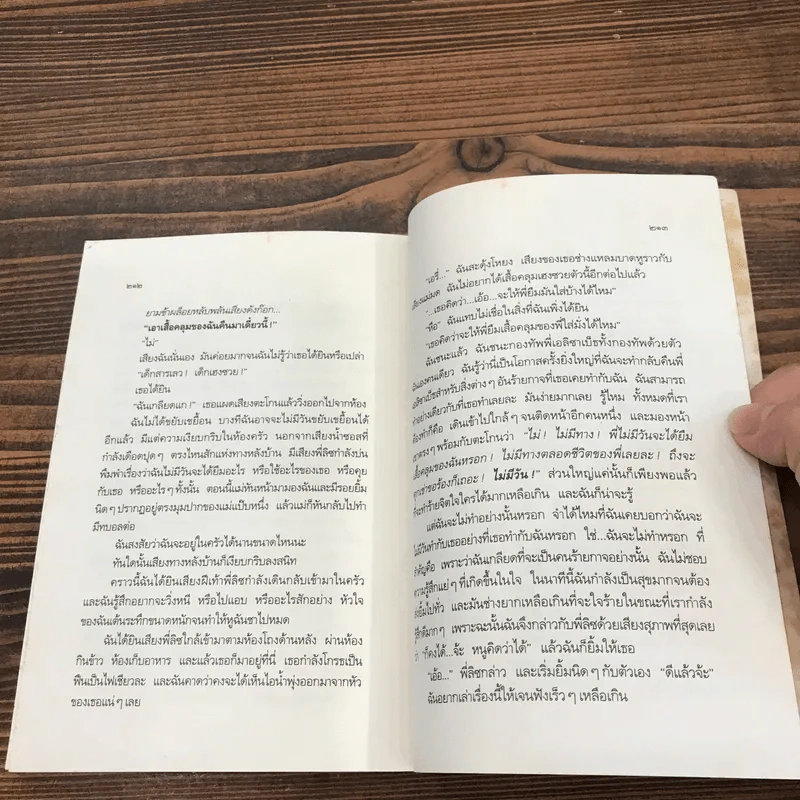 ๒๑๒
ยามช้าผล็อยหลับพลันเสียงดังก๊อก...
"เอาเสื้อคลุมของฉันคืนมาเดี๋ยวนี้!"
"ไม่"
เสียงฉันนั่นเอง มันค่อยมากจนฉันไม่รู้ว่าเธอได้ยินหรือเปล่า
"เด็กสารเลว! เด็กเฮงซวย!"
เธอได้ยิน
"ฉันเกลียดแก!" เธอแผดเสียงตะโกนแล้ววิ่งออกไปจากห้อง
ฉันไม่ได้ขยับเขยื้อน บางทีฉันอาจจะไม่มีวันขยับเขยื้อนได้
อีกแล้ว มีแต่ความเงียบกริบในห้องครัว นอกจากเสียงน้ำซอสที่
กำลังเดือดปุดๆ ตรงไหนสักแห่งทางหลังบ้าน มีเสียงพี่ลิซกำลังบ่น
พึมพำเรื่องว่าฉันไม่มีวันจะได้ยืมอะไร หรือใช้อะไรของเธอ หรือคุย
กับเธอ หรืออะไรๆ ทั้งนั้น ตอนนี้แม่หันหน้ามามองฉันและมีรอยยิ้ม
นิดๆ ปรากฏอยู่ตรงมุมปากของแม่แป๊บหนึ่ง แล้วแม่ก็หันกลับไปทำ
มีทบอลต่อ
ฉันสงสัยว่าฉันจะอยู่ในครัวได้นานขนาดไหนนะ
ทันใดนั้นเสียงทางหลังบ้านก็เงียบกริบลงสนิท
คราวนี้ฉันได้ยินเสียงฝีเท้าพี่ลิซกำลังเดินกลับเข้ามาในครัว
และฉันรู้สึกอยากจะวิ่งหนี หรือไปแอบ หรืออะไรสักอย่าง หัวใจ
ของฉันเต้นระทึกขนาดหนักจนทำให้หูฉันชาไปหมด
ฉันได้ยินเสียงพี่ลิซใกล้เข้ามาตามห้องโถงด้านหลัง ผ่านห้อง
กินข้าว ห้องเก็บอาหาร และแล้วเธอก็มาอยู่ที่นี่ เธอกำลังโกรธเป็น
ฟืนเป็นไฟเชียวละ และฉันคาดว่าคงจะได้เห็นไอน้ำพุ่งออกมาจากหัว
ของเธอแน่ๆ เลย
๒๑๓
"เอรี่..." ฉันสะดุ้งโหยง เสียงของเธอช่างแหลมบาดหูราวกับ
แม่มด ฉันไม่อยากได้เสื้อคลุมเฮงซวยตัวนี้อีกต่อไปแล้ว
"...เธอคิดว่า...เอ้อ...จะให้พี่ยืมมันใส่บ้างได้ไหม"
"คือ" ฉันแทบไม่เชื่อในสิ่งที่ฉันเพิ่งได้ยิน
"เธอคิดว่าจะให้พี่ยืมเสื้อคลุมของพี่ใส่มั่งได้ไหม"
ฉันชนะแล้ว ฉันชนะกองทัพพี่เอลิซาเบ็ธทั้งกองทัพด้วยตัว
ฉันเองคนเดียว ฉันรู้ว่านี่เป็นโอกาสครั้งยิ่งใหญ่ที่ฉันจะทำกลับคืนพี่
เอลิซาเบ็ธสำหรับสิ่งต่างๆ อันร้ายกาจที่เธอเคยทำกับฉัน ฉันสามารถ
ทำอย่างเดียวกับที่เธอทำเลยละ มันง่ายมากเลย รู้ไหม ทั้งหมดที่เรา
ต้องทำก็คือ เดินเข้าไปใกล้ๆ จนติดหน้าอีกคนหนึ่ง และมองหน้า
เขาตรงๆ พร้อมกับตะโกนว่า "ไม่! ไม่มีทาง! พี่ไม่มีวันจะได้ยืม
เสื้อคลุมของฉันหรอก! ไม่มีทางตลอดชีวิตของพี่เลยละ! ถึงจะ
คุกเข่าขอร้องก็เถอะ! ไม่มีวัน!" ส่วนใหญ่แค่นั้นก็เพียงพอแล้ว
ที่จะทำร้ายจิตใจใครได้มากเหลือเกิน และฉันก็น่าจะรู้
แต่ฉันจะไม่ทำอย่างนั้นหรอก จำได้ไหมที่ฉันเคยบอกว่าฉันจะ
ไม่มีวันทำกับเธออย่างที่เธอทำกับฉันหรอก ใช่...ฉันจะไม่ทำหรอก ที่
สำคัญคือ เพราะว่าฉันเกลียดที่จะเป็นคนร้ายกาจอย่างนั้น ฉันไม่ชอบ
ความรู้สึกแย่ๆ ที่เกิดขึ้นในใจ ในนาทีนี้ฉันกำลังเป็นสุขมากจนต้อง
ยิ้มไปทั่ว และมันช่างยากเหลือเกินที่จะใจร้ายในขณะที่เรากำลัง
รู้สึกดีมากๆ เพราะฉะนั้นฉันจึงกล่าวกับพี่ลิซด้วยเสียงสุภาพที่สุดเลย
ว่า "ก็คงได้...จ้ะ หนูคิดว่าได้" แล้วฉันก็ยิ้มให้เธอ
"เอ้อ..." พี่ลิซกล่าว และเริ่มยิ้มนิดๆ กับตัวเอง "ดีแล้วจ้ะ"
ฉันอยากเล่าเรื่องนี้ให้เจนฟังเร็วๆ เหลือเกิน